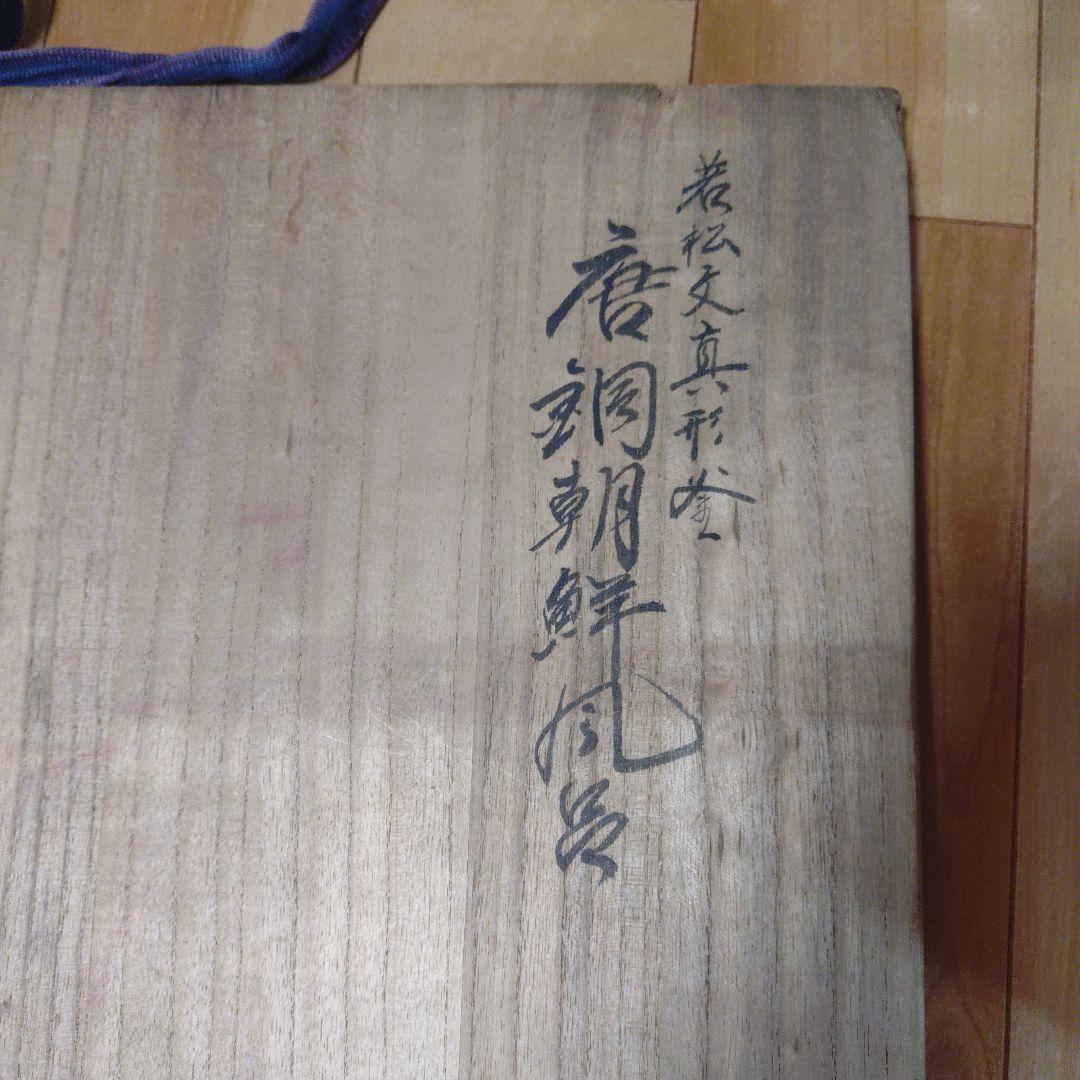 若松文真形釜
唐銅朝鮮風呂